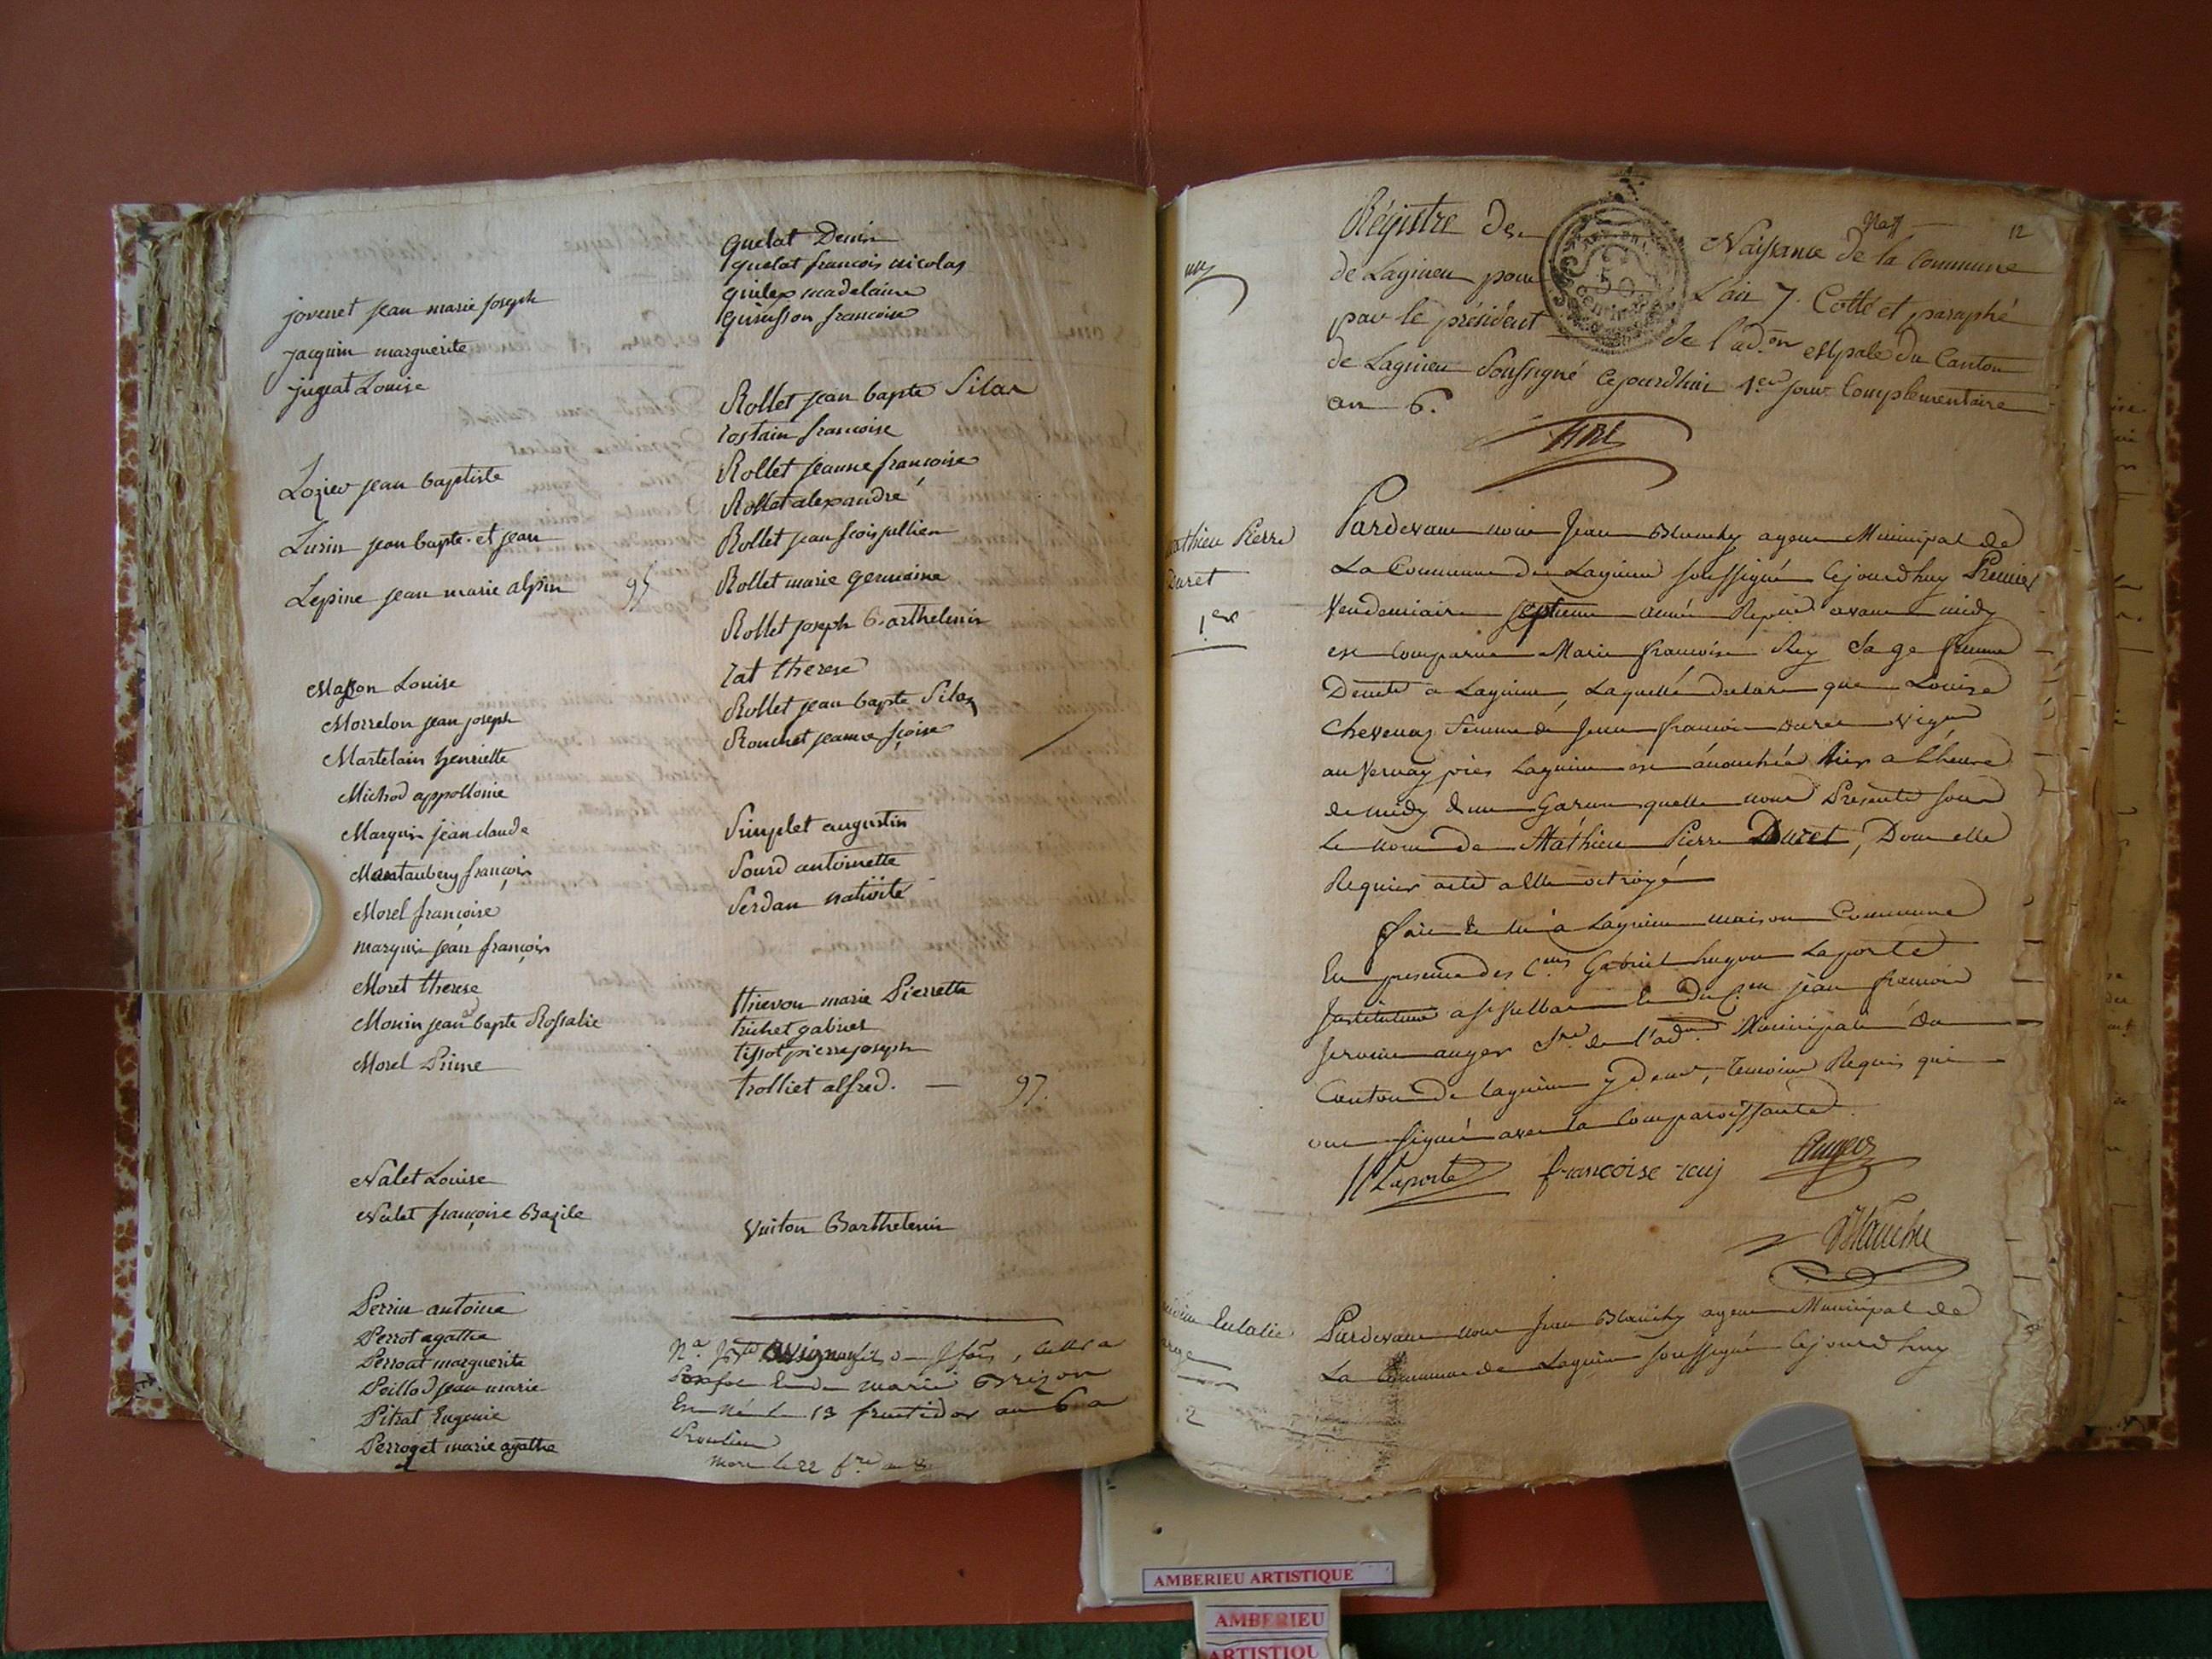 jovenet jean marie joseph
jacquin marguerite
jugeat Louise
Lozier jean baptiste
Lusin jean bapte. et jean
Lepine jean marie alpin 95
Masson Louise
Morrelon jean joseph
Martelain henriette
Michod appollonie
Marquis jean claude
Montaubery françois
Morel françoise
marquis jean françois
Moret therese
Monin jean bapte Rossalie
Morel Prime
Nalet Louise
Nalet françoise Bazile
Perrin antoine
Perrot agathe
Perroat marguerite
Peillod jean marie
Pitrat Eugenie
Perroget marie agathe
quelat Denis
quelat francois nicolas
quilex madelaine
quinsson francoise
Rollet jean bapte Silan
rostain francoise
Rollet jeanne francoise
Rollet alexandre
Rollet jean fcois jullien
Rollet marie germaine
Rollet joseph Barthelemi
rat therese
Rollet jean bapte Silan
Rouchet jeanne fcoise
Simplet augustin
Sourd antoinette
Serdan nativité
thievon marie Pierrette
trichet gabriel
tissot pierre joseph
trolliet alfred. — 97.
Vuiton Barthelemi
marie Brizon
né le 13 fructidor an 6 a
mort le 22
12
Régistre des Naissance de la Commune
de Lagnieu pour L'an 7. Cotté et paraphé
par le président de l'ad.on Mpale du Canton
de Lagnieu Soussigné Cejourdhui 1.er jour Complémentaire
an 6.
50
athieu Pierre
Duret
1er
Pardevant nous Jean Blanchy agent Municipal de
La Commune de Lagnieu soussigné Cejourdhuy Premier
Vendemiaire septieme année Repnè avant midy
est Comparue Marie francoise Rey Sage femme
a Lagnieu, Laquelle declare que Louise
Chevenaz femme de Jean francois Duret
au Vernay près Lagnieu est acouchée hier a Lheure
de midy dun Garson quelle nous Presente sous
Le nom de Mathieu Pierre Duret, Dont elle
Requier acte a Elle octroyé
fait & lu a Lagnieu maison Commune
En presence des C.ens Gabriel hugon Laporte
Instituteur & du C.en jean francois
auger Sre de l'ad.on Municipale du
Canton de Lagnieu y demt, temoins Requis qui
ont signé avec la Comparoissante.
Laporte francoise rey Auger
Blanchy
Eulalie
2
Pardevant nous Jean Blanchy agent Municipal de
La Commune de Lagnieu soussigné Cejourdhuy
AMBERIEU ARTISTIQUE
AMBERIEU
ARTISTIQU